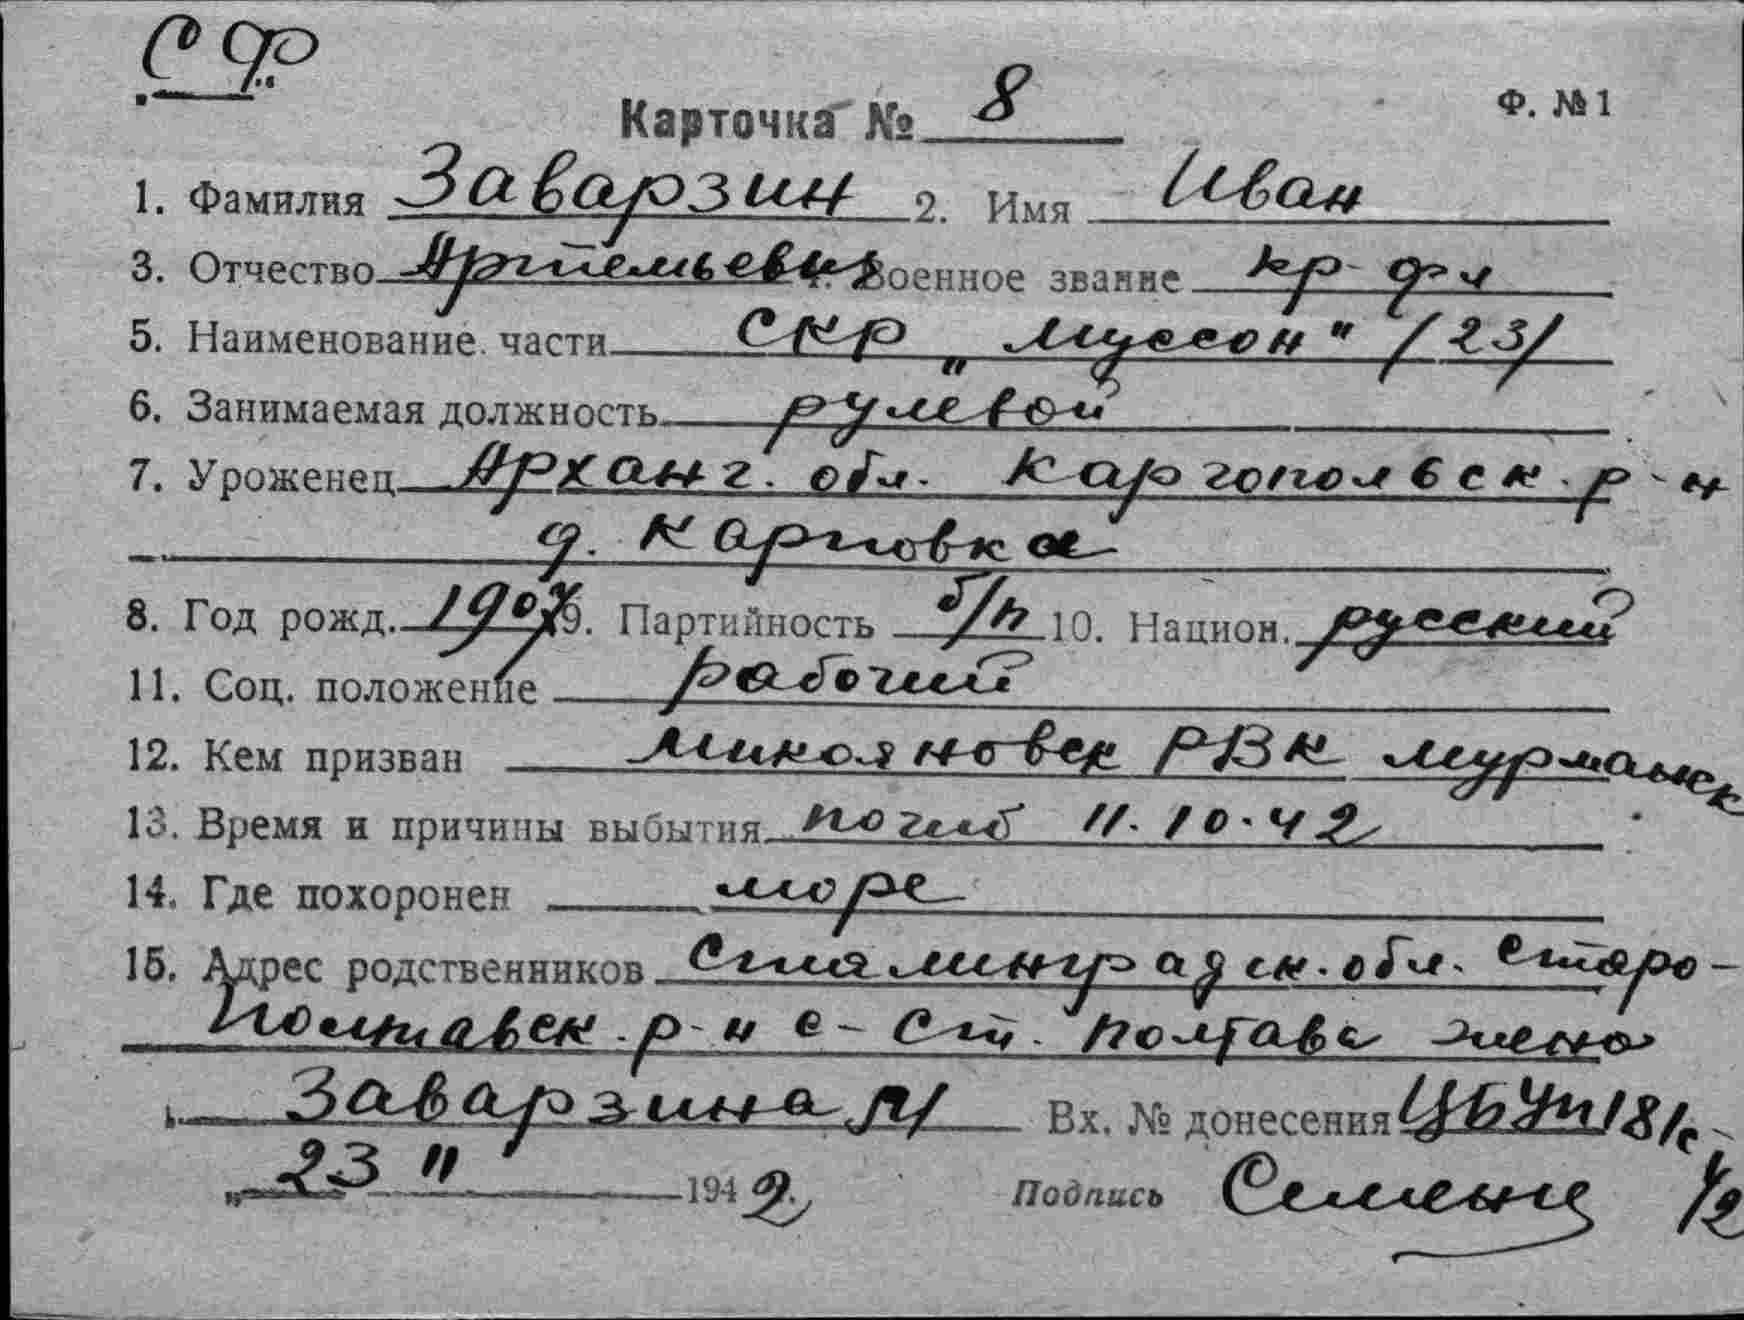 СФ
Карточка № 8 Ф. №1
1. Фамилия Заварзин 2. Имя Иван
3. Отчество Артемьевич 4. Военное звание кр-фл
5. Наименование части СКР „Муссон" /23/
6. Занимаемая должность рулевой
7. Уроженец Арханг. обл. Каргопольск. р-н
д. Карповка
8. Год рожд. 1907 9. Партийность б/п 10. Национ. русский
11. Соц. положение рабочий
12. Кем призван Микояновск РВК Мурманск
13. Время и причины выбытия погиб 11.10.42
14. Где похоронен море
15. Адрес родственников Сталинградск. обл. Старо-
Полтавск. р-н с-Ст. Полтавка жена
Заварзина Л/ Вх. № донесения ЦБУП 18/с
„23" 1942 Подпись Семенц